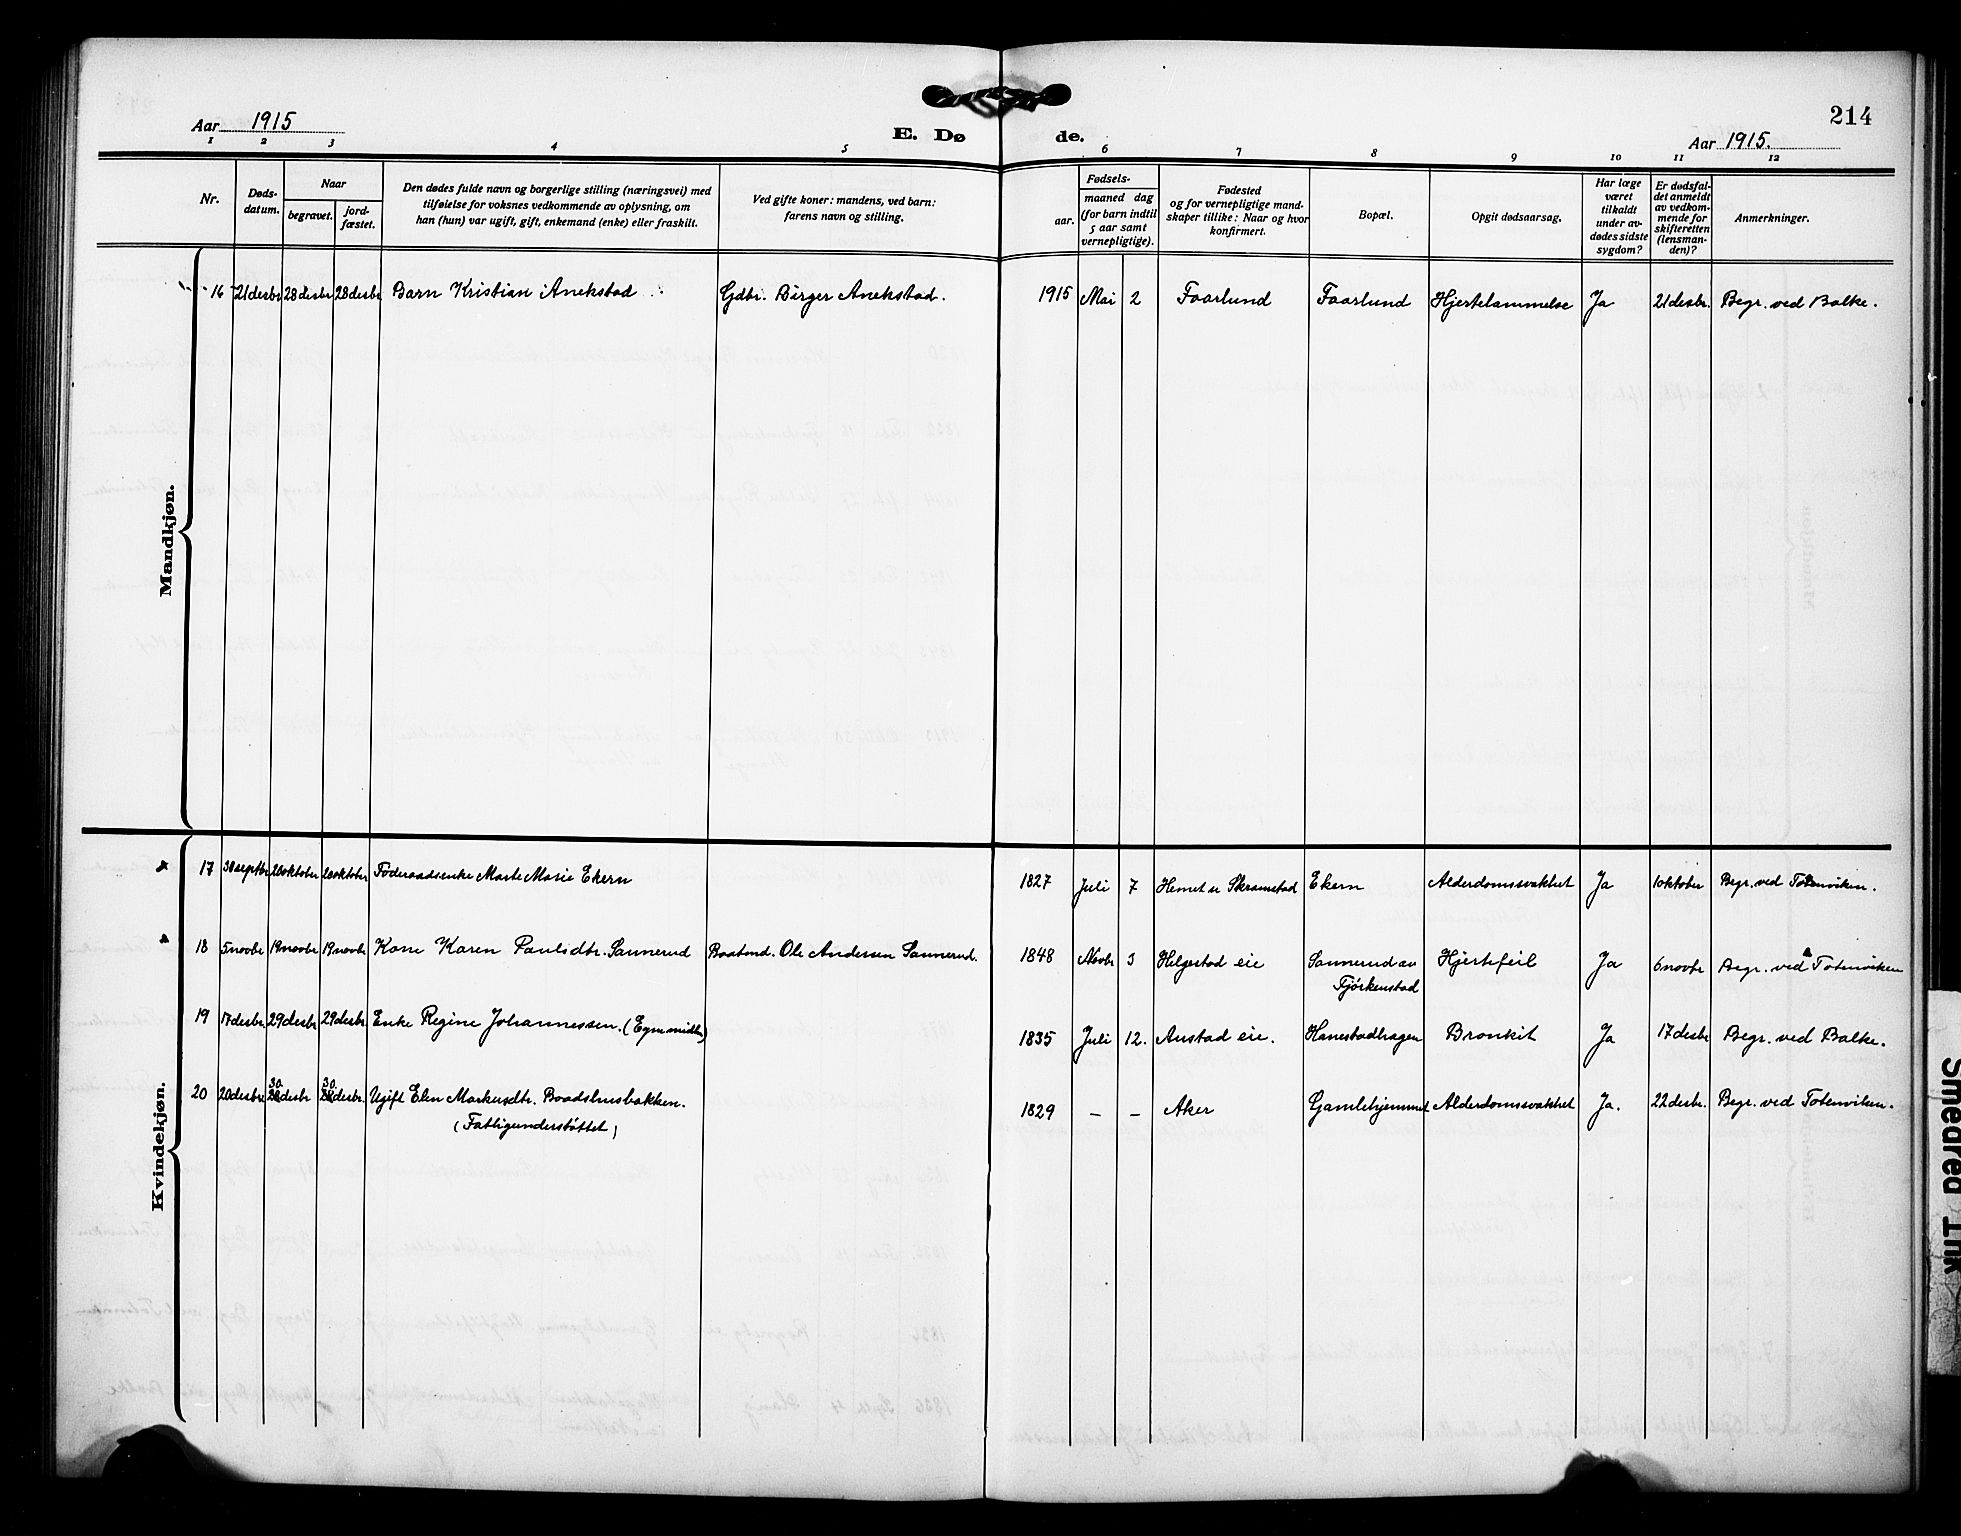 214
Aar 1915
E. Dø de.
Aar 1915.
1 2 3 4 5 6 7 8 9 10 11 12
Nr.
Døds-
datum.
Naar
begravet.
jord-
fæstet.
Den dødes fulde navn og borgerlige stilling (næringsvei) med
tilføielse for voksnes vedkommende av oplysning, om
han (hun) var ugift, gift, enkemand (enke) eller fraskilt.
Ved gifte koner: mandens, ved barn:
farens navn og stilling.
Fødsels-
aar.
maaned dag
(for barn indtil
5 aar samt
vernepligtige).
Fødested
og for vernepligtige mand-
skaper tillike: Naar og hvor
konfirmert.
Bopæl.
Opgit dødsaarsag.
Har læge
været
tilkaldt
under av-
dødes sidste
sygdom?
Er dødsfal-
det anmeldt
av vedkom-
mende for
skifteretten
(lensman-
den)?
Anmerkninger.
Mandkjøn.
16 21desbr 28desbr 28desbr Barn Kristian Anekstad Gdbr. Birger Anekstad. 1915 Mai 2 Faarlund Faarlund Hjertelammelse Ja 21desbr. Begr. ved Balke.
Kvindekjøn.
17 septbr oktober oktober Föderaadsenke Marte Marie Ekern 1827 Juli 7 Skramstad Ekern Alderdomssvakhet Ja 1oktober Begr. ved Totenviken.
18 5novbr 19novbr 19novbr Kone Karen Paulsdtr. Sannerud Baatmd. Ole Andersen Sannerud. 1848 Novbr 3 Helgestad eie Sannerud av Hjertefeil Ja 6novbr Begr. ved Totenviken
Tjörkenstad
19 17desbr. 29desbr 29desbr. Enke Regine Johannessen. (Egne midler) 1835 Juli 12. Anstad eie. Hanestadhagen Bronkit Ja 17desbr Begr. ved Balke.
20 20desbr. 30 desbr 30 desbr. Ugift Elen Markusdtr. Baadshusbakken. 1829 – – Aker Gamlehjemmet Alderdomssvakhet Ja. 22desbr. Begr. ved Totenviken.
(Fattigunderstöttet)
Smeared Ink